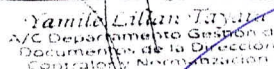 Yamile Lilian Tayara
A/C Departamento Gestión d
Documentos de la Dirección
Contralor y Normalización